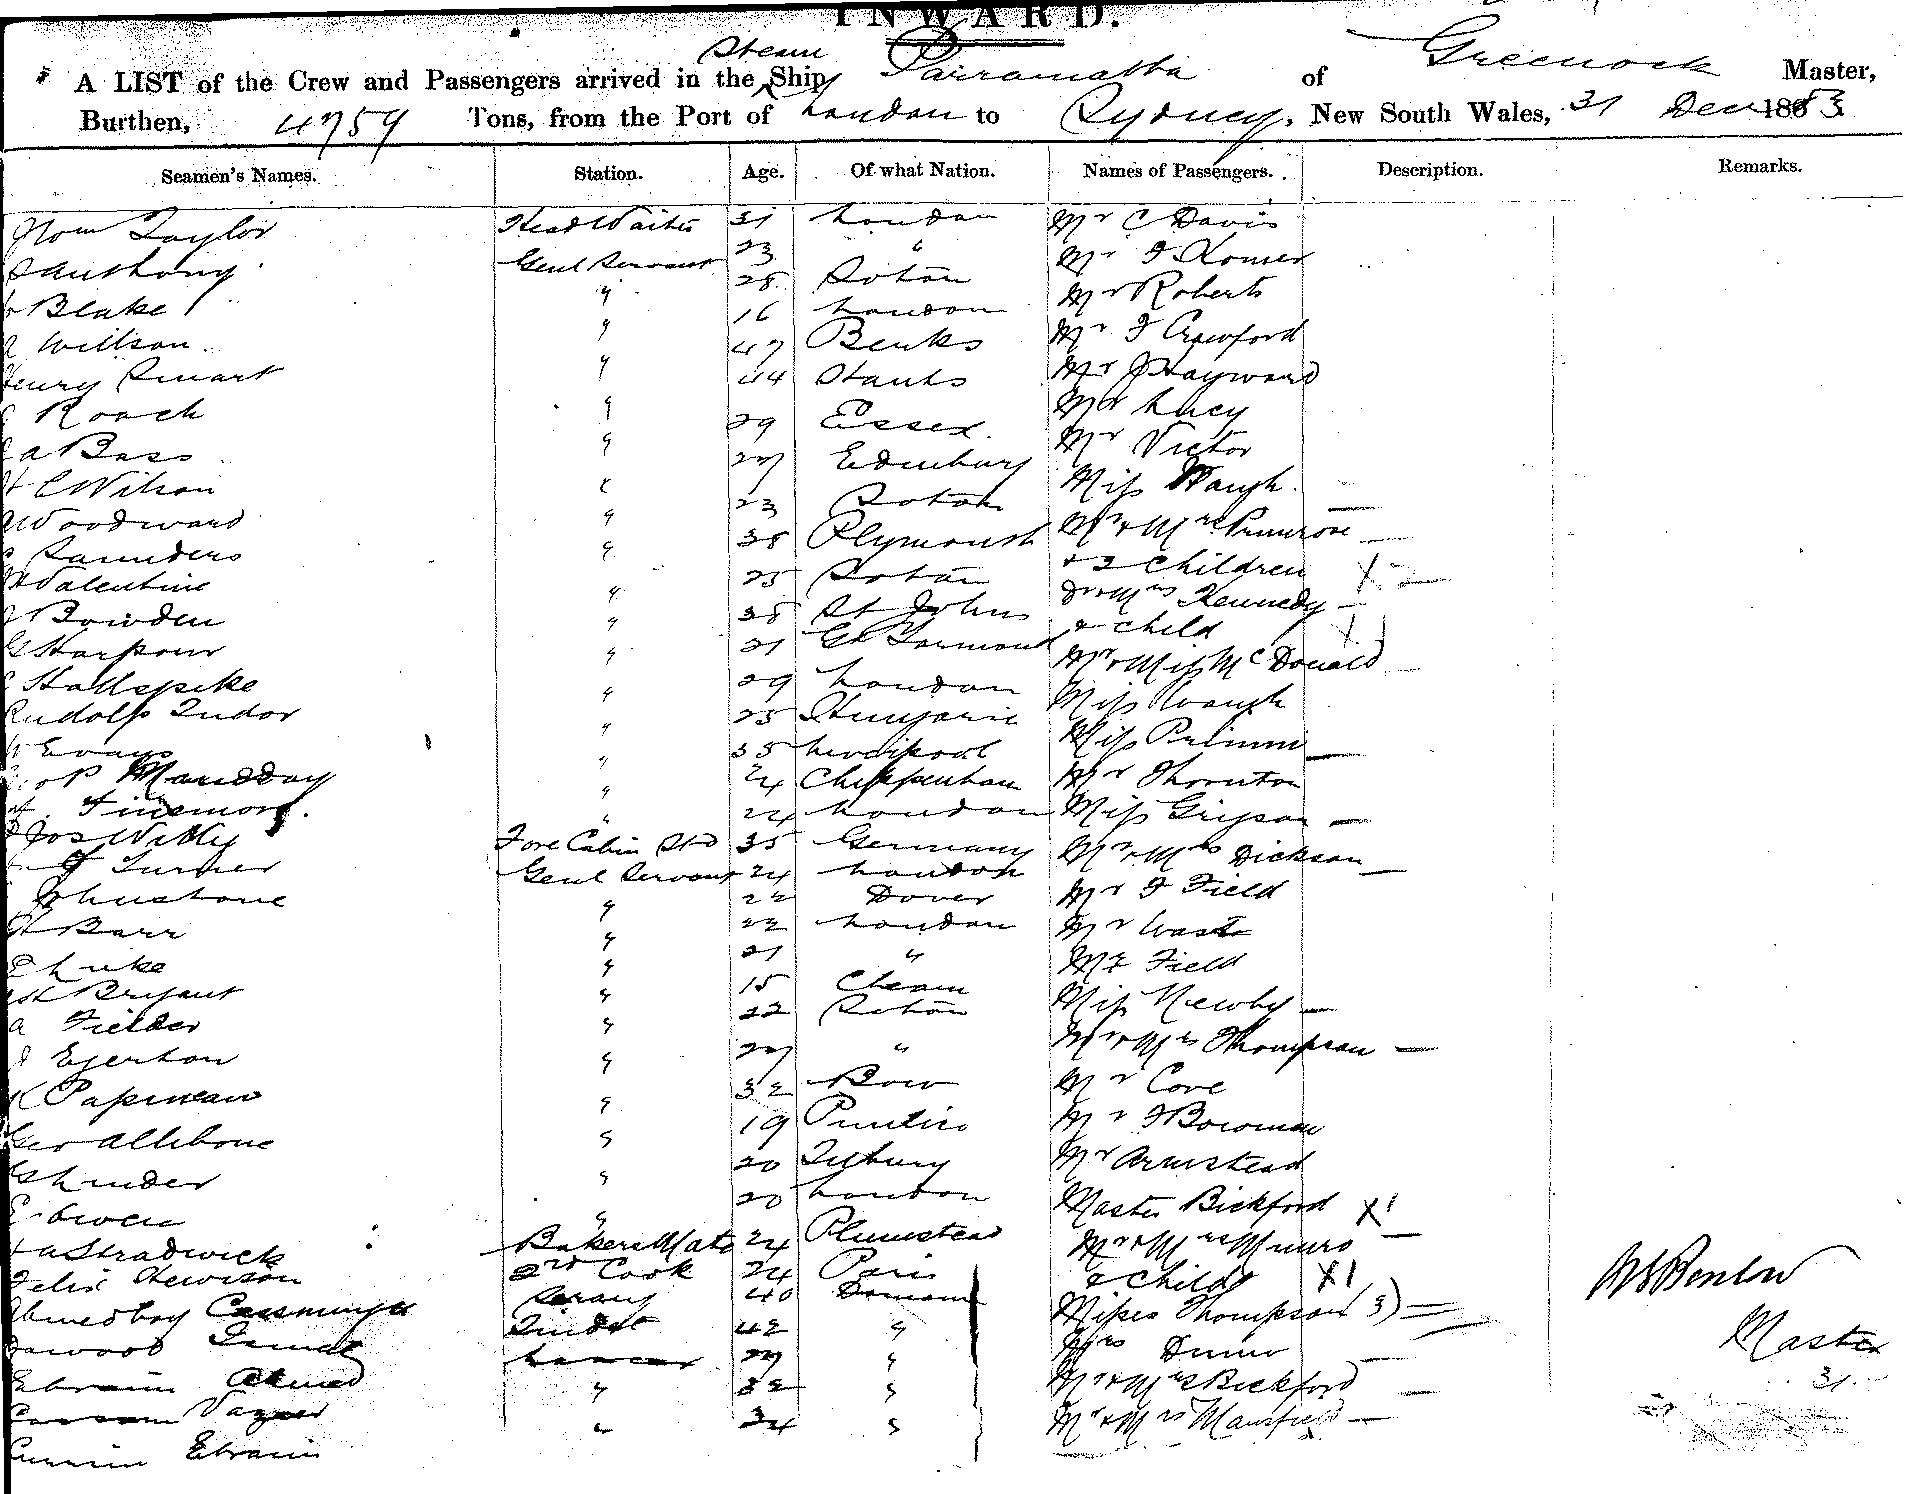 INWARD.
Steam
A LIST of the Crew and Passengers arrived in the Ship Parramatta of Greenock Master,
Burthen, 4759 Tons, from the Port of London to Sydney, New South Wales, 31 Dec 1883
Seamen's Names. Station. Age. Of what Nation. Names of Passengers. Description. Remarks.
Thom Taylor Head Waiter 31 London Mr C Davis
Anthony Genl Servant 23 " Mr F Homer
Blake " 28 Soton Mr Roberts
Willson " 16 London Mr F Crawford
Henry Smart " 47 Berks Mr J Hayward
Roach " 44 Hants Mr Lucy
a Bass " 29 Essex Mr Victor
C Wilson " 27 Edenburg Miss Waugh
Woodward " 23 Soton Mr & Mrs Primrose
Saunders " 38 Plymouth & 2 Children X 2
Valentine " 25 Soton Dr & Mrs Kennedy
Bowden " 38 St Johns & child X 1
Harpour " 21 Gt Yarmouth Mr & Miss McDonald
Hallspike " 29 London Miss Waugh
Rudolf Tudor " 25 Hungarie Miss Primm
Evans " 35 Liverpool Mr Thornton
Mandday " 24 Chippenham Miss Gripson
Finemore " 24 London Mr & Mrs Dickson
Jos Witty Fore Cabin Std 35 Germany Mr F Field
Turner Genl Servant 24 London Mr West
Johnstone " 22 Dover Mr Field
Barr " 22 London Miss Newby
Luke " 21 " Mr & Mrs Thompson
Bryant " 15 Cheam Mr Cove
a Fielder " 22 Soton Mr F Bowman
Egerton " 27 " Mr Armstead
Papineau " 32 Bow Master Bickford X 1
Geo Allibone " 19 Pimlico Mr & Mrs Munro
Linder " 20 Tilbury & Child X 1
Owen " 20 London Misses Thompson (3)
a Stradwick Bakers Mate 24 Plumstead Mrs Dunn
Felix Hewison 2nd Cook 24 Paris Mr & Mrs Bickford
Ahmedboy Serang 40 Damaun Mr & Mrs Mansfield
Dawood Tindal 42 "
Ebraim Ahmed Lascar 27 "
Cassam " 32 "
Ebraim " 34 "
Benlow
Master
31